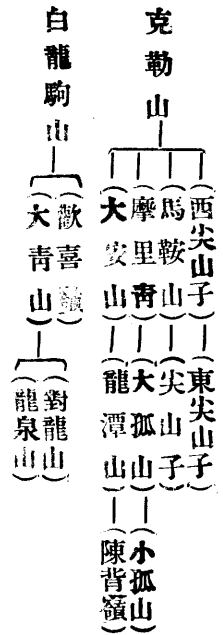 克勒山
(西尖山子)
(東尖山子)
(馬鞍山)
(尖山子)
(摩里青)
(大孤山)
(小孤山)
(大安山)
(龍潭山)
(陳背嶺)
白龍駒山
(歡喜嶺)
(大青山)
(對龍山)
(龍泉山)